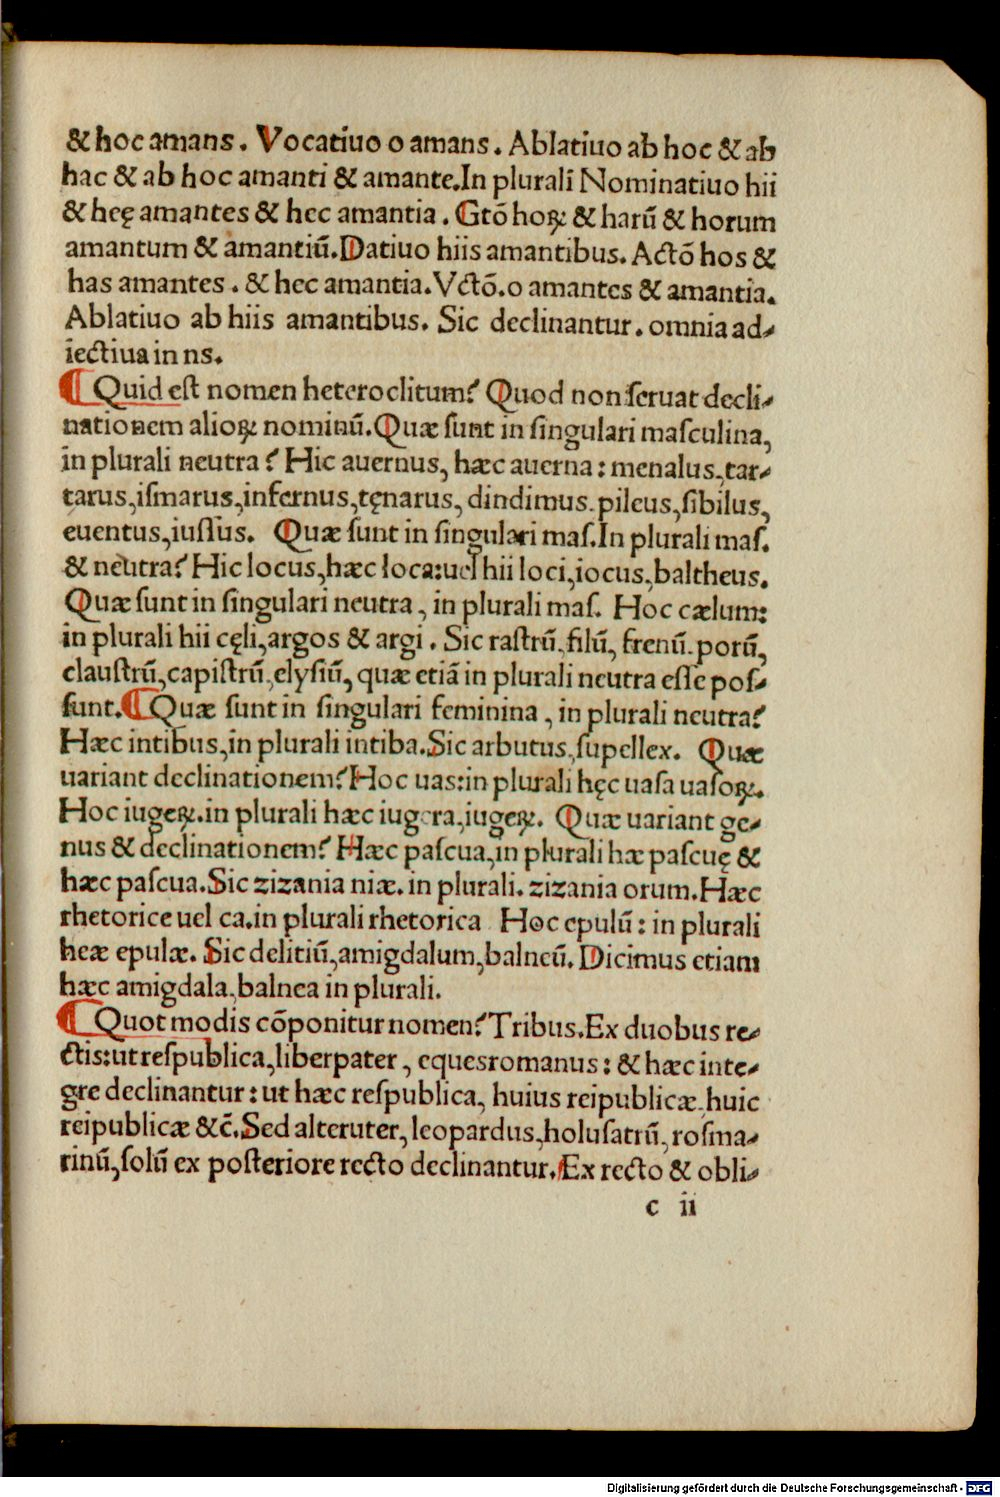 & hoc amans. Vocatiuo o amans. Ablatiuo ab hoc & ab
hac & ab hoc amanti & amante.In plurali Nominatiuo hii
& heę amantes & hec amantia. Gtō hoꝝ & harū & horum
amantum & amantiū.Datiuo hiis amantibus. Actō hos &
has amantes. & hec amantia.Vctō.o amantes & amantia.
Ablatiuo ab hiis amantibus. Sic declinantur. omnia ad-
iectiua in ns.
¶ Quid eſt nomen heteroclitum? Quod non ſeruat decli-
nationem alioꝝ nominū.Quæ ſunt in ſingulari maſculina,
in plurali neutra? Hic auernus, hæc auerna: menalus,tar-
tarus,iſmarus,infernus,tęnarus, dindimus.pileus,ſibilus,
euentus,iuſſus. Quæ ſunt in ſingulari maſ.In plurali maſ.
& neutra? Hic locus,hæc loca:uel hii loci,iocus,baltheus.
Quæ ſunt in ſingulari neutra, in plurali maſ. Hoc cælum:
in plurali hii cęli,argos & argi. Sic raſtrū,filū, frenū.porū,
clauſtrū,capiſtrū,elyſiū, quæ etiā in plurali neutra eſſe poſ-
ſunt.¶ Quæ ſunt in ſingulari feminina, in plurali neutra?
Hæc intibus,in plurali intiba.Sic arbutus,ſupellex. Quæ
uariant declinationem? Hoc uas:in plurali hęc uaſa uaſoꝝ.
Hoc iugeꝝ.in plurali hæc iugera,iugeꝝ. Quæ uariant ge-
nus & declinationem? Hæc paſcua,in plurali hæ paſcuę &
hæc paſcua.Sic zizania niæ. in plurali. zizania orum.Hæc
rhetorice uel ca.in plurali rhetorica Hoc epulū: in plurali
heæ epulæ. Sic delitiū,amigdalum,balneū. Dicimus etiam
hæc amigdala,balnea in plurali.
¶ Quot modis cōponitur nomen? Tribus.Ex duobus re-
ctis:ut reſpublica,liberpater, equesromanus: & hæc inte-
gre declinantur: ut hæc reſpublica, huius reipublicæ,huic
reipublicæ &c̄.Sed alteruter,leopardus,holuſatrū, roſma-
rinū,ſolū ex poſteriore recto declinantur.Ex recto & obli-
c ii
Digitalisierung gefördert durch die Deutsche Forschungsgemeinschaft - DFG